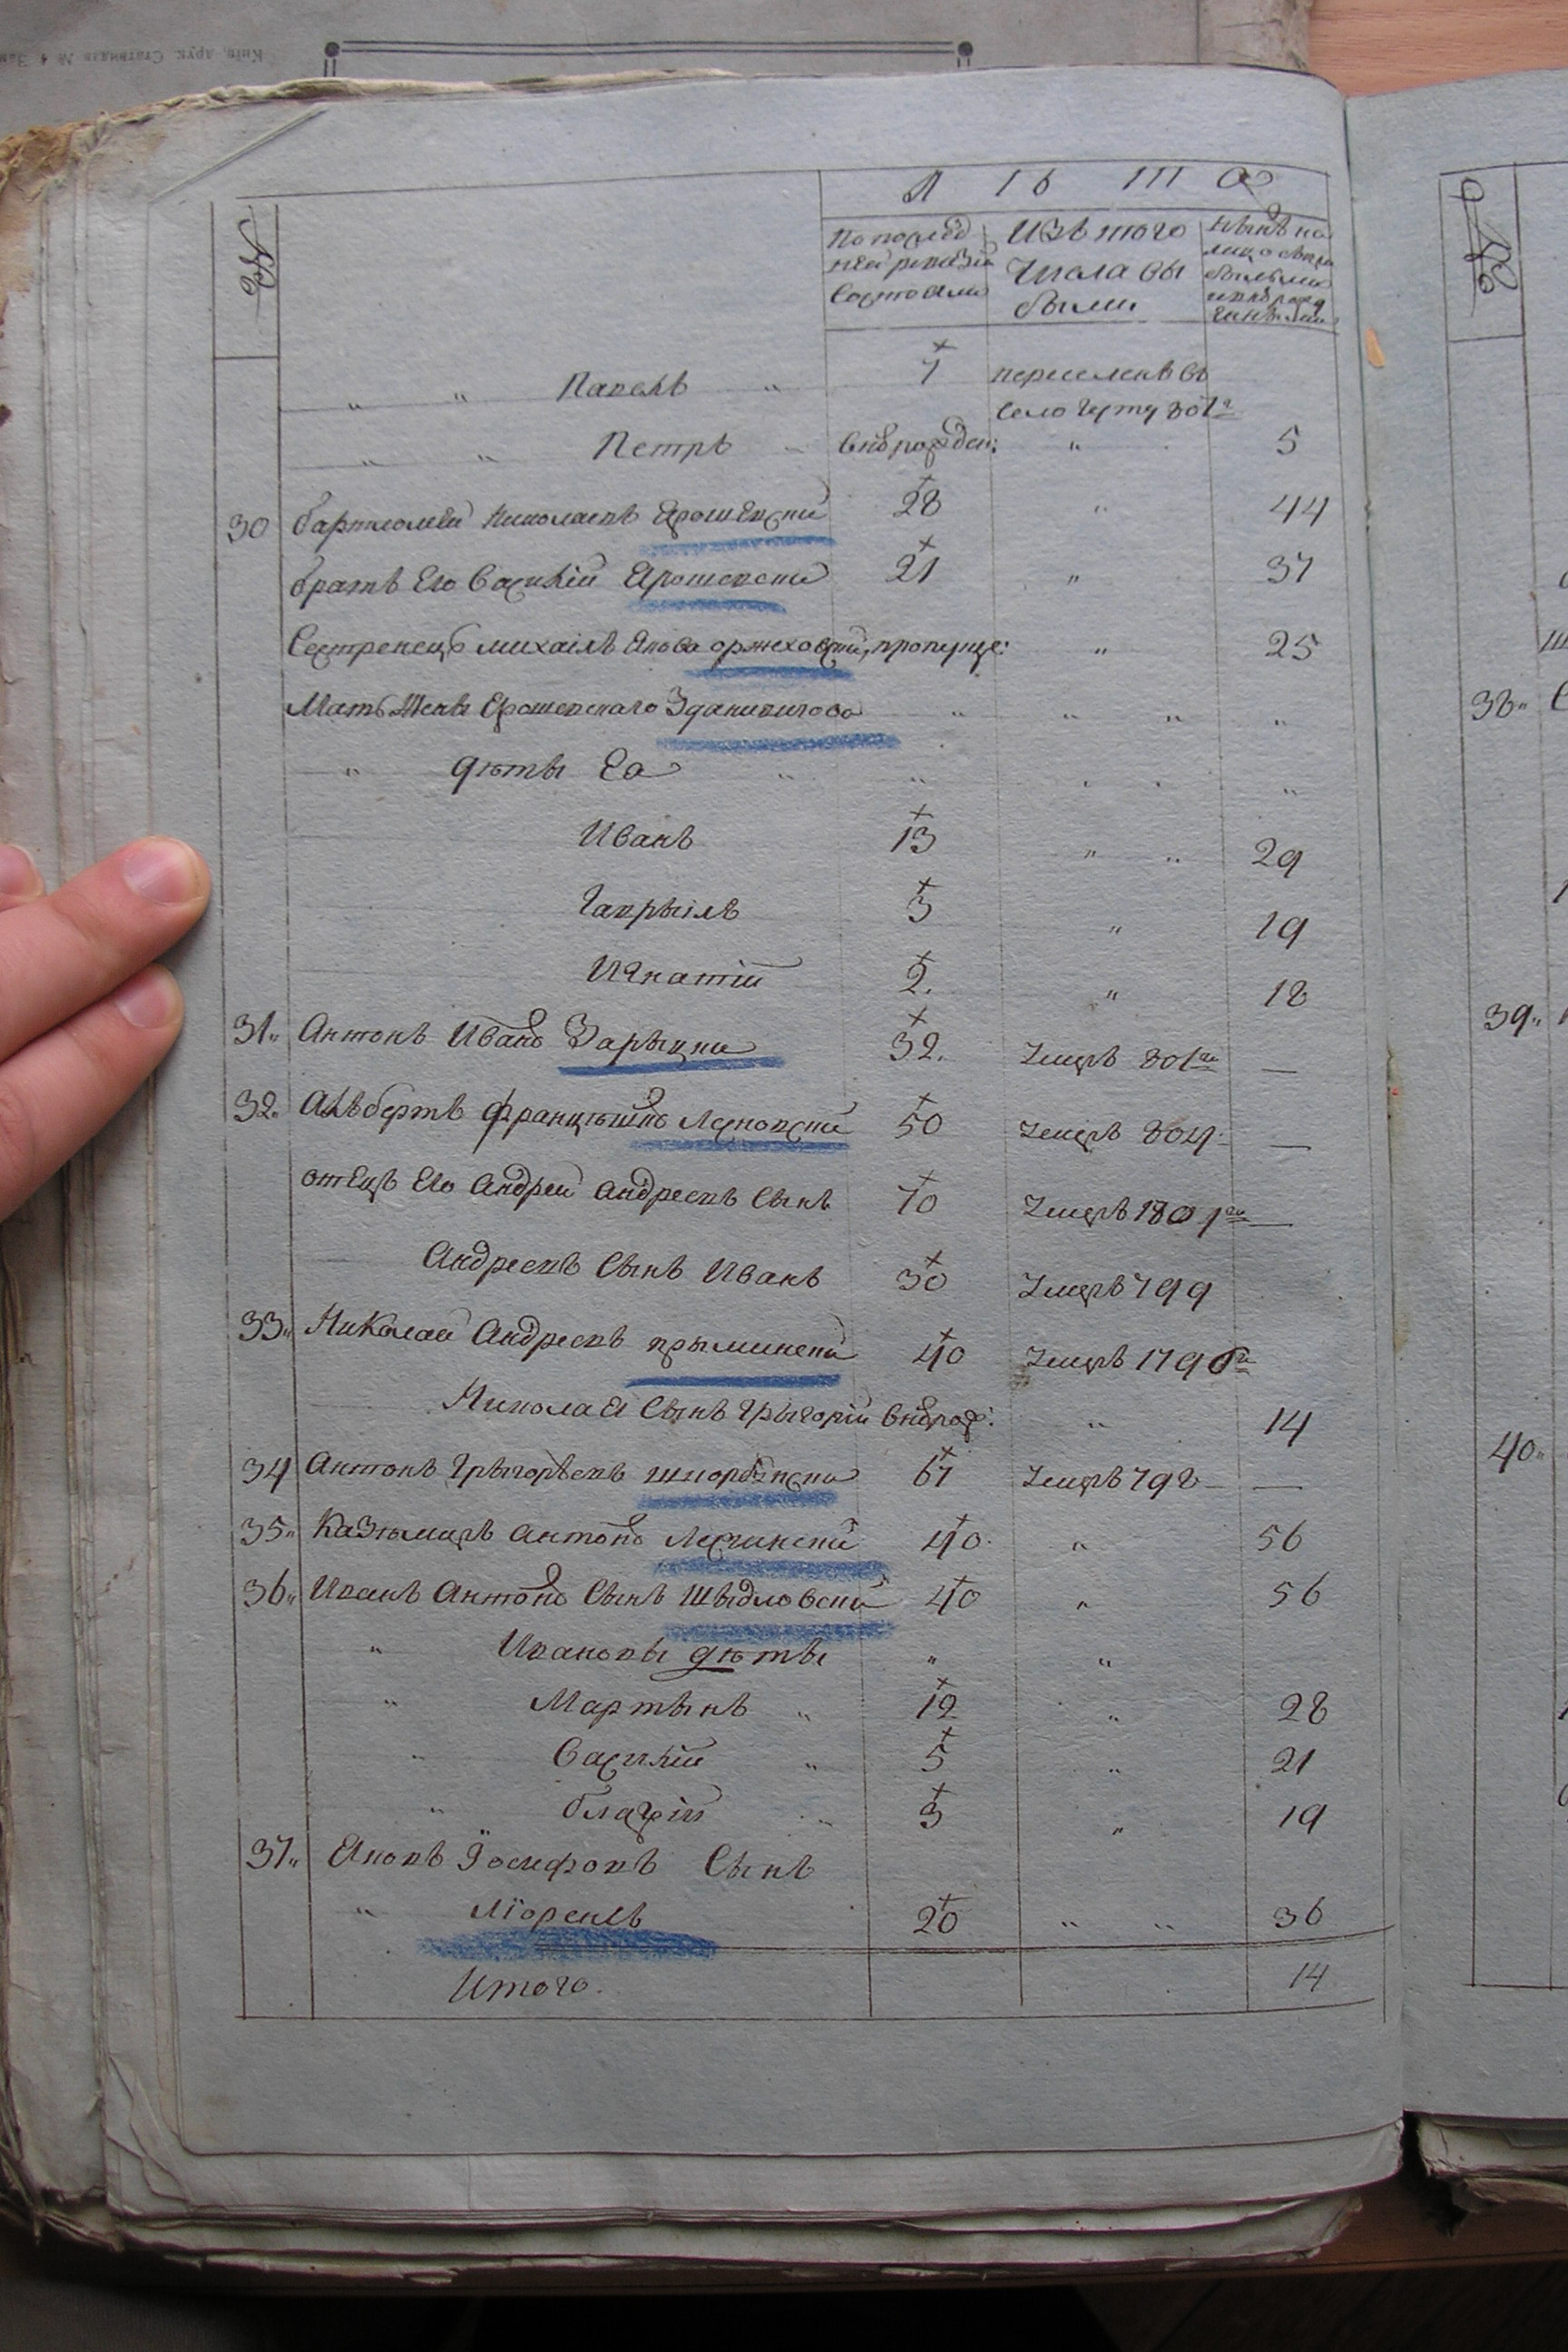 Київ, друк. Статвидав № 4 Зам
№
Л ѣ т а
По послед
ней ревизіи
состояли
Изъ того
числа вы
были
нынѣ на
лицо
№
" " Павелъ " 7 переселенъ въ
село 801г
" " Петръ - вновърожден: " 5
30 бартломѣй Николаевъ Ерошевски 28 " 44
братъ Его Василій Ерошевски 21 " 37
Сестренецъ михаілъ Якова оржеховскій, пропуще: " 25
Мать Жены Ерошевскаго Зданевичова " " " "
" дѣты Еа " " . . "
Иванъ 13 " " 29
Гаврыілъ 3 " 19
Игнатій 2. " 18
31" Антонъ Ивано Зарыцки 32. Умеръ 801го —
32" Альбертъ францѣшко Лесновски 50 Умеръ 804 —
отецъ Его Андрей Андреевъ Сынъ 70 Умеръ 1801го —
Андреевъ Сынъ Иванъ 30 Умеръ 799
33" Николай Андреевъ крымински 40 Умеръ 1796го
Николая Сынъ Грыгорій вновърож: " 14
34 Антонъ Грыгорьевъ 67 Умеръ 798 — —
35" Казѣмиръ Антоно Лесчинский 40. " 56
36" Иванъ Антоно Сынъ Шыдловский 40 " 56
" Ивановы дѣты " "
" Мартынъ " 12 " 28
" Василій " 5 " 21
" " 3 " 19
37" Яковъ Іосифовъ Сынъ
" Лїоренсъ 20 " " 36
Итого. 14
38"
39"
40"